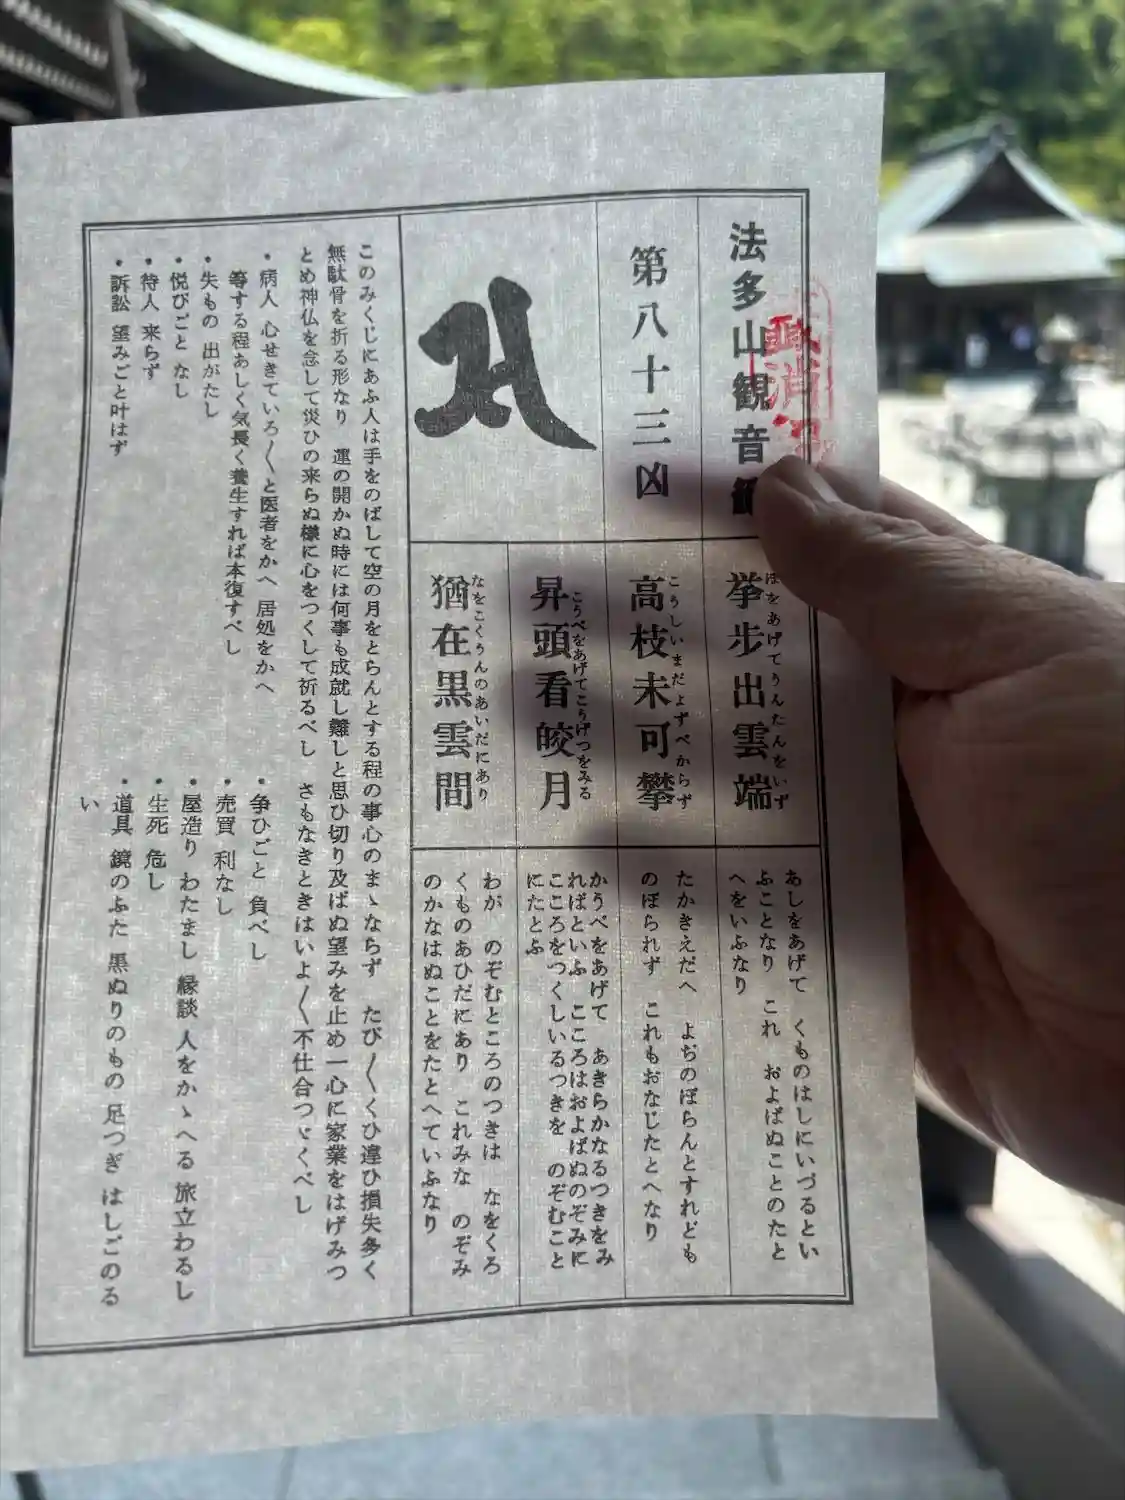 法多山観音
第八十三凶
挙歩出雲端
ほをあげてうんたんをいず
高枝未可攀
こうしいまだよずべからず
昇頭看皎月
こうべをあげてこうげつをみる
猶在黒雲間
なをこくうんのあいだにあり
あしをあげて くものはしにいづるとい
ふことなり これ およばぬことのたと
へをいふなり
たかきえだへ よぢのぼらんとすれども
のぼられず これもおなじたとへなり
かうべをあげて あきらかなるつきをみ
ればといふ こころはおよばぬのぞみに
こころをつくしいるつきを のぞむこと
にたとふ
わが のぞむところのつきは なをくろ
くものあひだにあり これみな のぞみ
のかなはぬことをたとへていふなり
このみくじにあふ人は手をのばして空の月をとらんとする程の事心のまゝならず たび〳〵くひ違ひ損失多く
無駄骨を折る形なり 運の開かぬ時には何事も成就し難しと思ひ切り及ばぬ望みを止め一心に家業をはげみつ
とめ神仏を念して災ひの来らぬ様に心をつくして祈るべし さもなきときはいよ〳〵不仕合つゞくべし
・病人 心せきていろ〳〵と医者をかへ 居処をかへ
等する程あしく気長く養生すれば本復すべし
・失もの 出がたし
・悦びごと なし
・待人 来らず
・訴訟 望みごと叶はず
・争ひごと 負べし
・売買 利なし
・屋造り わたまし 縁談 人をかゝへる 旅立わるし
・生死 危し
・道具 鏡のふた 黒ぬりのもの 足つぎ はしごのる
い